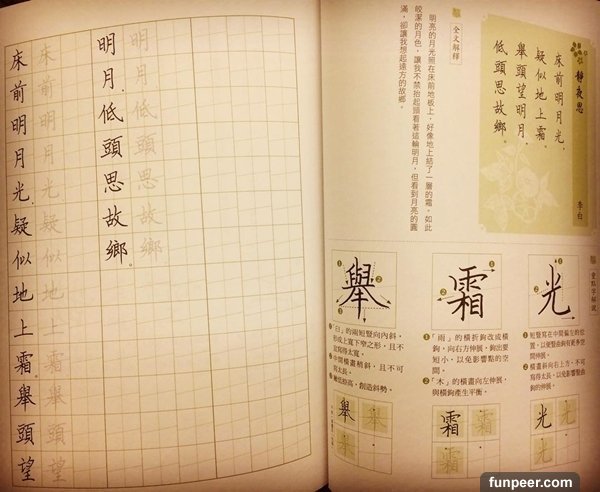 靜夜思
李白
床前明月光，
疑似地上霜。
舉頭望明月，
低頭思故鄉。
全文解釋
明亮的月光照在床前地板上，好像地上結了一層的霜，如此
皎潔的月色，讓我不禁抬起頭看著這輪明月，但看到月亮的圓
滿，卻讓我想起遠方的故鄉。
重點字解說
光
❶短豎寫在中間偏左的位
置，以便豎曲鉤有更多空
間伸展。
❷橫畫斜向右上方，不可寫
得太長，以免影響豎曲
鉤的伸展。
光 光
光
霜
❶「雨」的橫折鉤改成橫
鉤，向右方伸展，鉤出要
短小，以免影響點的空
間。
❷「木」的橫畫向左伸展，
與橫鉤產生平衡。
霜 霜
霜
舉
❶「臼」的兩短豎向內斜，
形成上寬下窄之形，且不
宜寫得太寬。
❷中間橫畫稍斜，且不可
寫得太長。
低捺高，創造斜勢。
舉 舉
舉
床前明月光，疑似地上霜舉頭望
床前明月光疑似地上霜舉頭望
明月，低頭思故鄉。
明月低頭思故鄉
funpeer.com